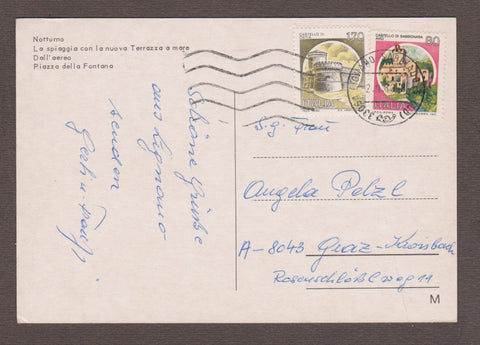 Notturno
La spiaggia con la nuova Terrazza a mare
Dall'aereo
Piazza della Fontana
Schöne Grüße
aus Lignano
senden
170
CASTELLO DI
ITALIA
80
CASTELLO DI
ITALIA
S.g. Frau
Angela Pelzl
A-8043 Graz-Kroisbach
Rosenschlößlweg 11
M